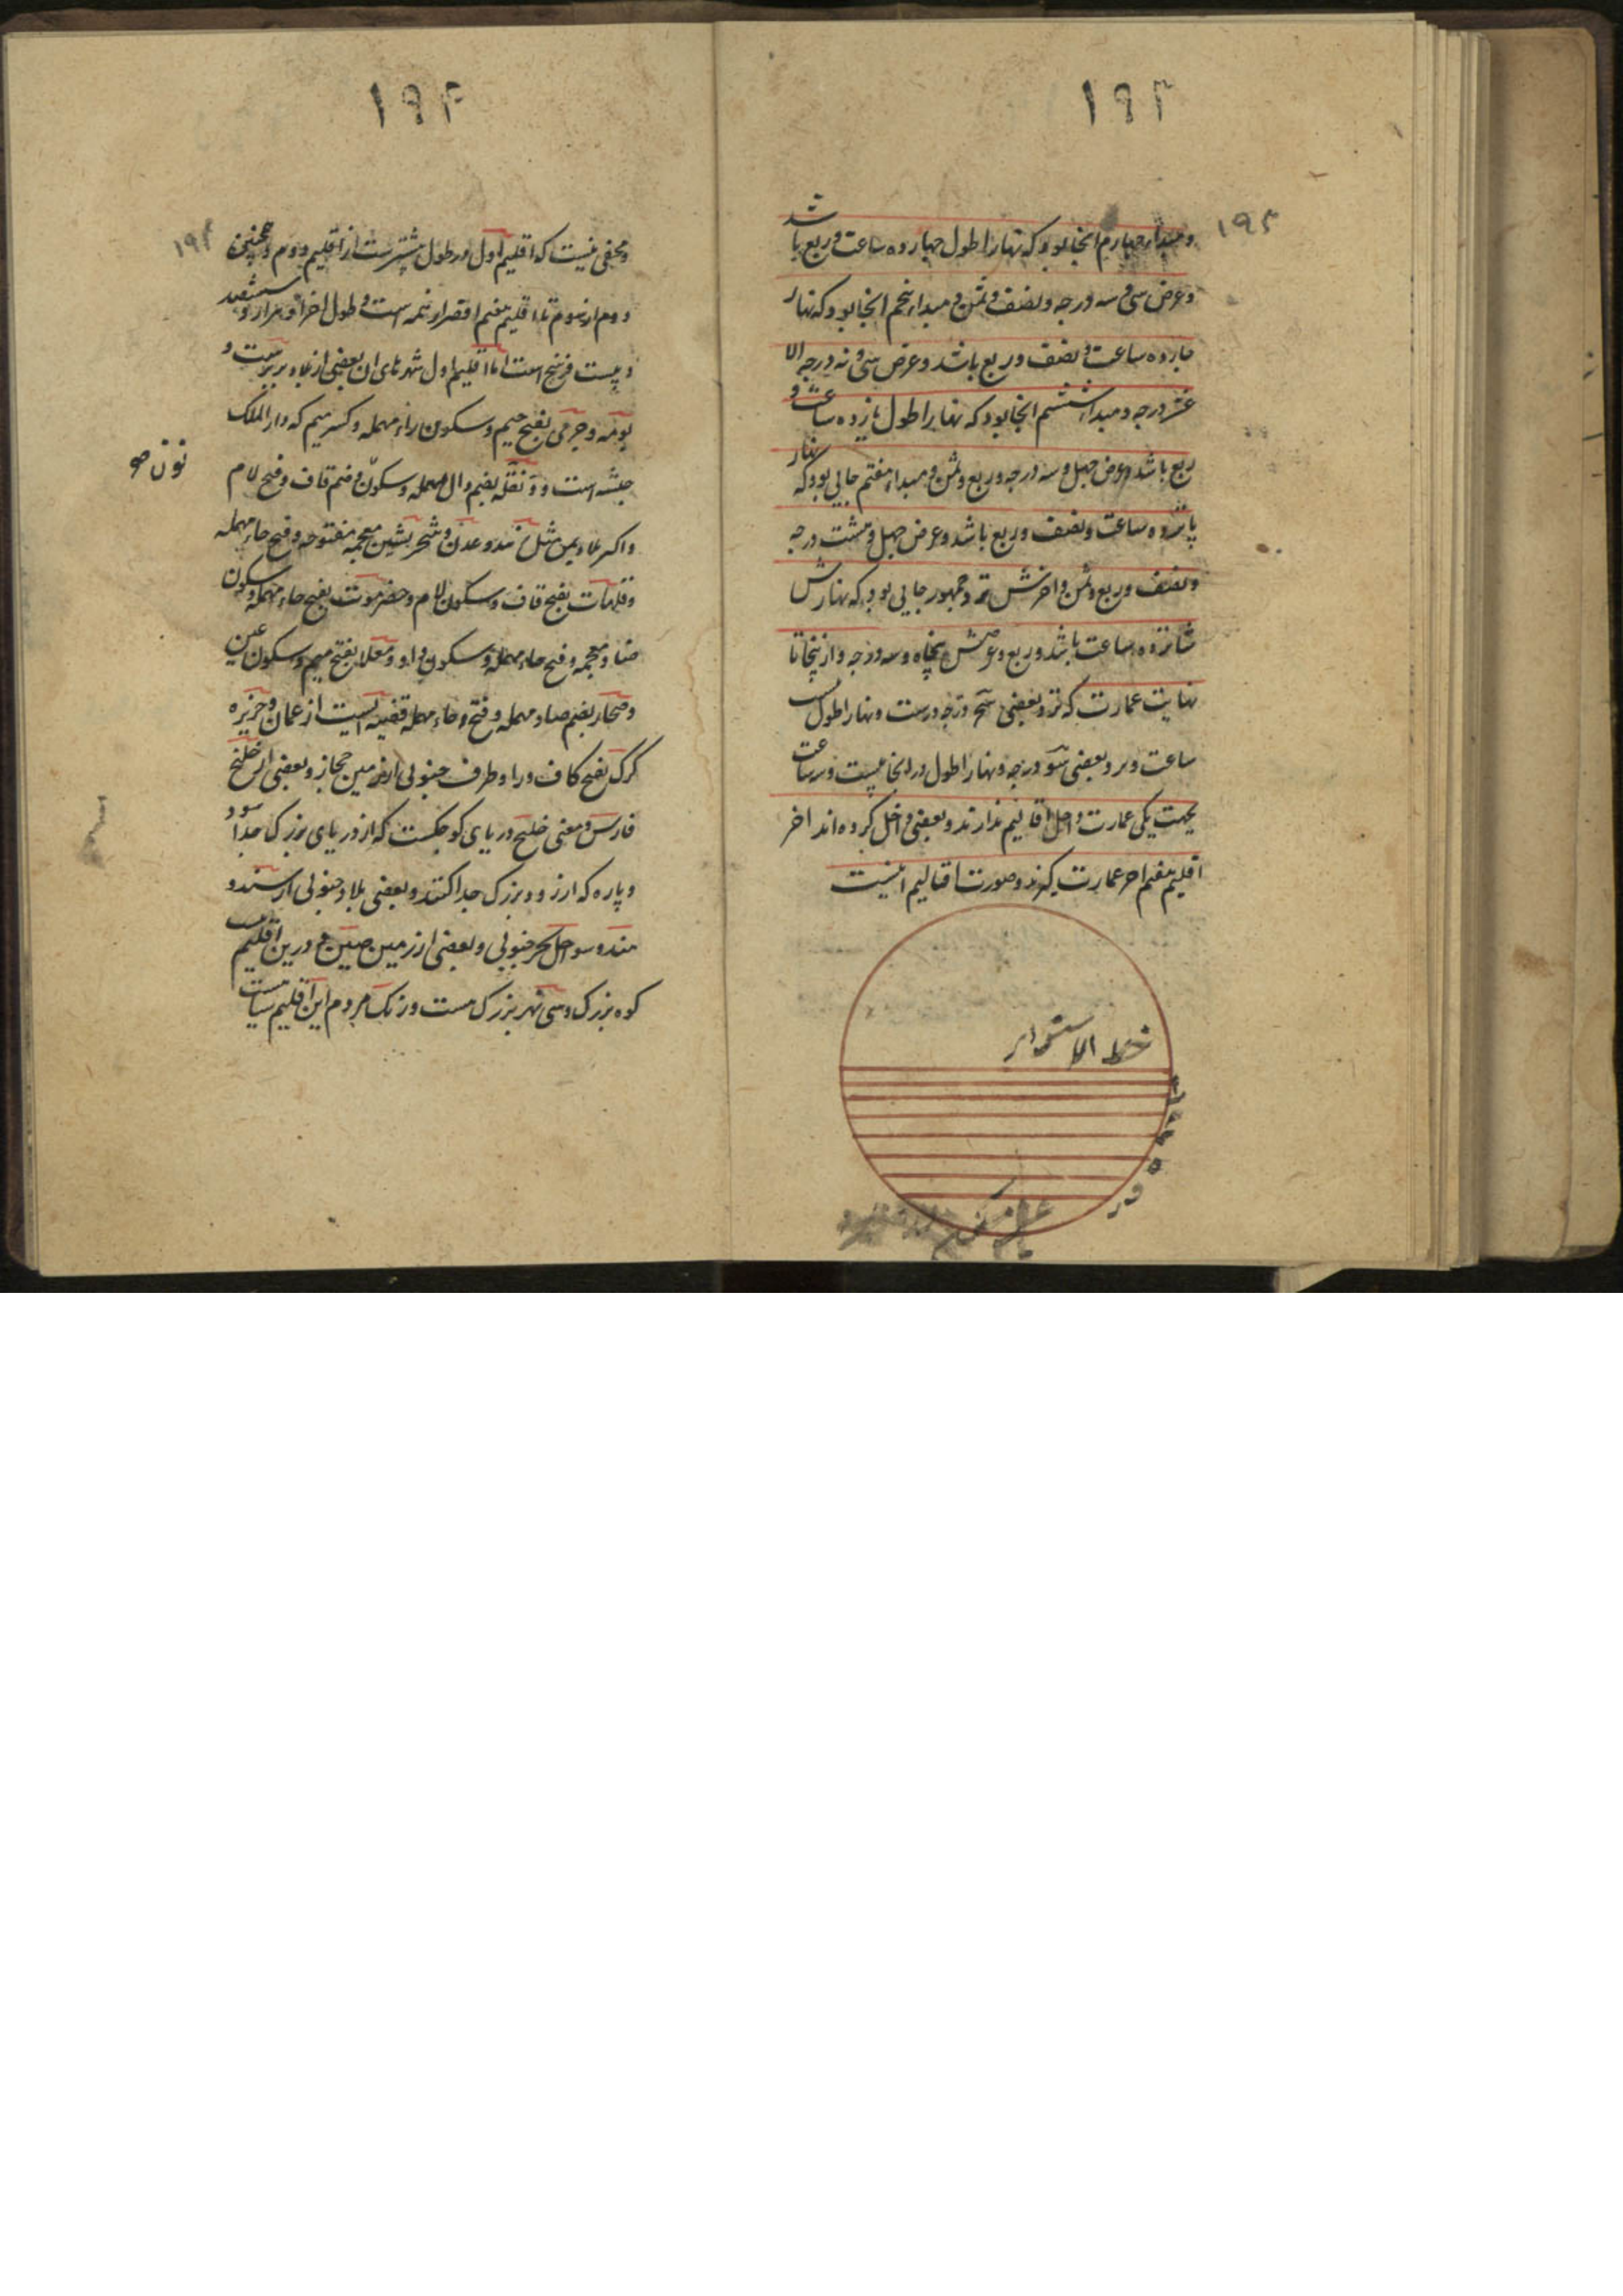 ۱۹۳
۱۹۳
و مبداء چهارم انجا بود که نهار اطول چهارده ساعت و ربع باشد
و عرض سی و سه درجه و نصف و ثمن و مبداء پنجم انجا بود که نهار
چارده ساعت و نصف و ربع باشد و عرض سی و نه درجه الا
عشر درجه و مبداء ششم انجا بود که نهار اطول پانزده ساعت و
ربع باشد و عرض چهل و سه درجه و ربع و ثمن و مبداء هفتم جایی بود که نهار
پانزده ساعت و نصف و ربع باشد و عرض چهل و هشت درجه
و نصف و ربع و ثمن و اخرش نزد جمهور جایی بود که نهارش
شانزده ساعت باشد و ربع و عرضش پنجاه و سه درجه و از پنجا تا
نهایت عمارت که نزد بعضی درجه است و نهار اطول
ساعت و نزد بعضی سو درجه و نهار اطول در انجا بیست و سه ساعت
بجهت یکی عمارت داخل اقالیم ندارند و بعضی داخل کرده اند اخر
اقلیم هفتم اخر عمارت گیرند و صورت اقالیم اینست
خط الاستواء
۱۹۴
۱۹۴
و مخفی نیست که اقلیم اول در طول بیشترست از اقلیم دوم و همچنین
دوم از سوم تا اقلیم هفتم اقصر از همه است و طول اخر او هزار و ششصد
و بیست فرسخ است اما اقلیم اول شهرهای ان بعضی از بلاد بربرست و
بومه و جرمی بفتح جیم و سکون راء مهمله و کسر میم که دار الملک
حبشه است و دنقله بضم دال مهمله و سکون و ضم قاف و فتح لام
نون صو
و اکثر بلاد یمن مثل و عدن و شحر بشین معجمه مفتوحه و فتح حاء مهمله
و قلهات بفتح قاف و سکون لام و حضرموت بفتح حاء مهمله و سکون
ضاد معجمه و فتح حاء مهمله و سکون واو و معلا بفتح میم و سکون عین
و صحار بضم صاد مهمله و فتح حاء مهمله قصبه ایست از عمان و جزیره
کرک بفتح کاف و را و طرف جنوبی از زمین حجاز و بعضی از خلیج
فارس و معنی خلیج دریای کوچکست که از دریای بزرک جدا شود
و پاره که از رود بزرک جدا کنند و بعضی بلاد جنوبی از سند و
هند و سواحل بحر جنوبی و بعضی از زمین چین و درین اقلیم
کوه بزرک و سی نهر بزرک هست و رنک مردم این اقلیم سیاهست